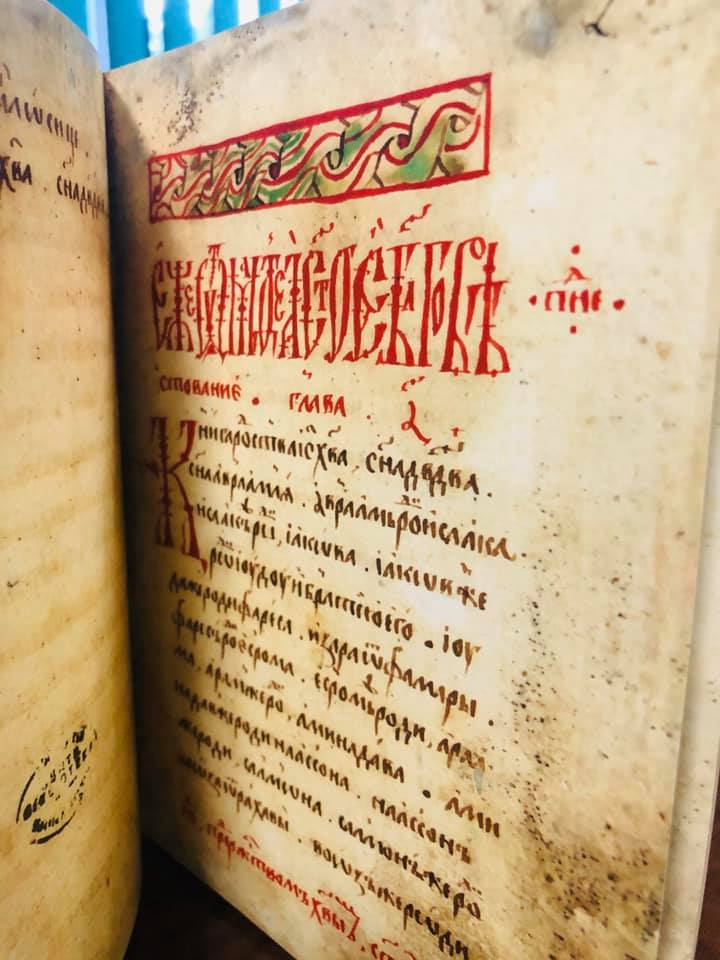 х҃ва . сн҃а дв҃д
Еже ѿ матѳеа ст҃ое бл҃говѣ
ствование . глава . а҃ .
Книга роства і҃с х҃ва , сн҃а дв҃два .
сн҃а авраамля . авраамъ роⷣ исаака .
исаакъ роⷣ , іакѡва . іакѡвъ же
роⷣ іоудоу и братию его . іоу
да же роди фареса . и зара ѿ фамары .
фаресъ роⷣ есрома . есромъ роди , ара
ма . арамъ же роⷣ , аминадава . ами
надавъ же роди наассона . наассонъ
же роди салмѡна . салмонъ же роⷣ
ѿ рахавы . воѡзъ же роди
рожествомъ х҃вы